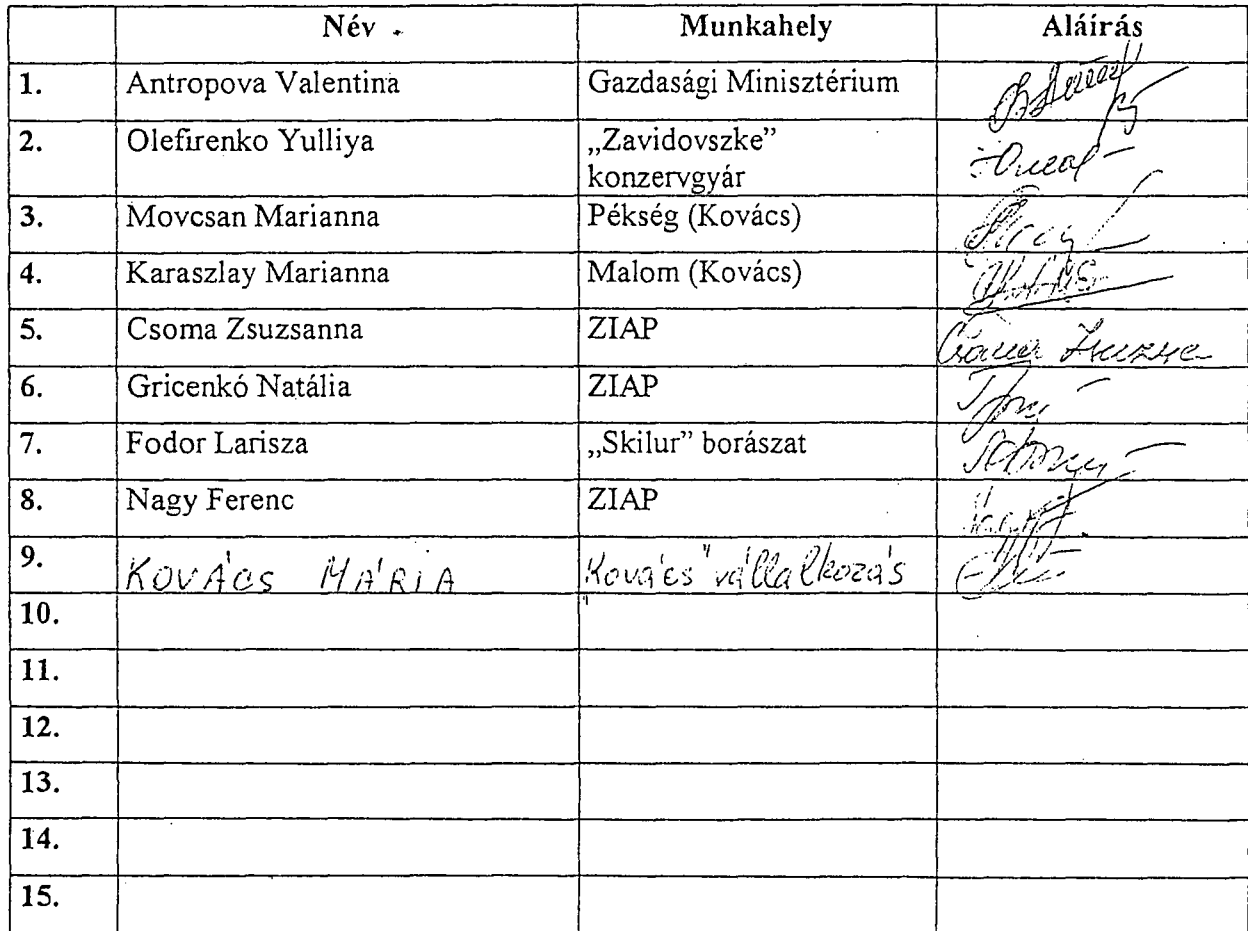 Név Munkahely Aláírás
1. Antropova Valentina Gazdasági Minisztérium
2. Olefirenko Yulliya „Zavidovszke”
konzervgyár
3. Movcsan Marianna Pékség (Kovács)
4. Karaszlay Marianna Malom (Kovács)
5. Csoma Zsuzsanna ZIAP
6. Gricenkó Natália ZIAP
7. Fodor Larisza „Skilur” borászat
8. Nagy Ferenc ZIAP
9. KOVÁCS MÁRIA „Kovács" vállalkozás
10.
11.
12.
13.
14.
15.